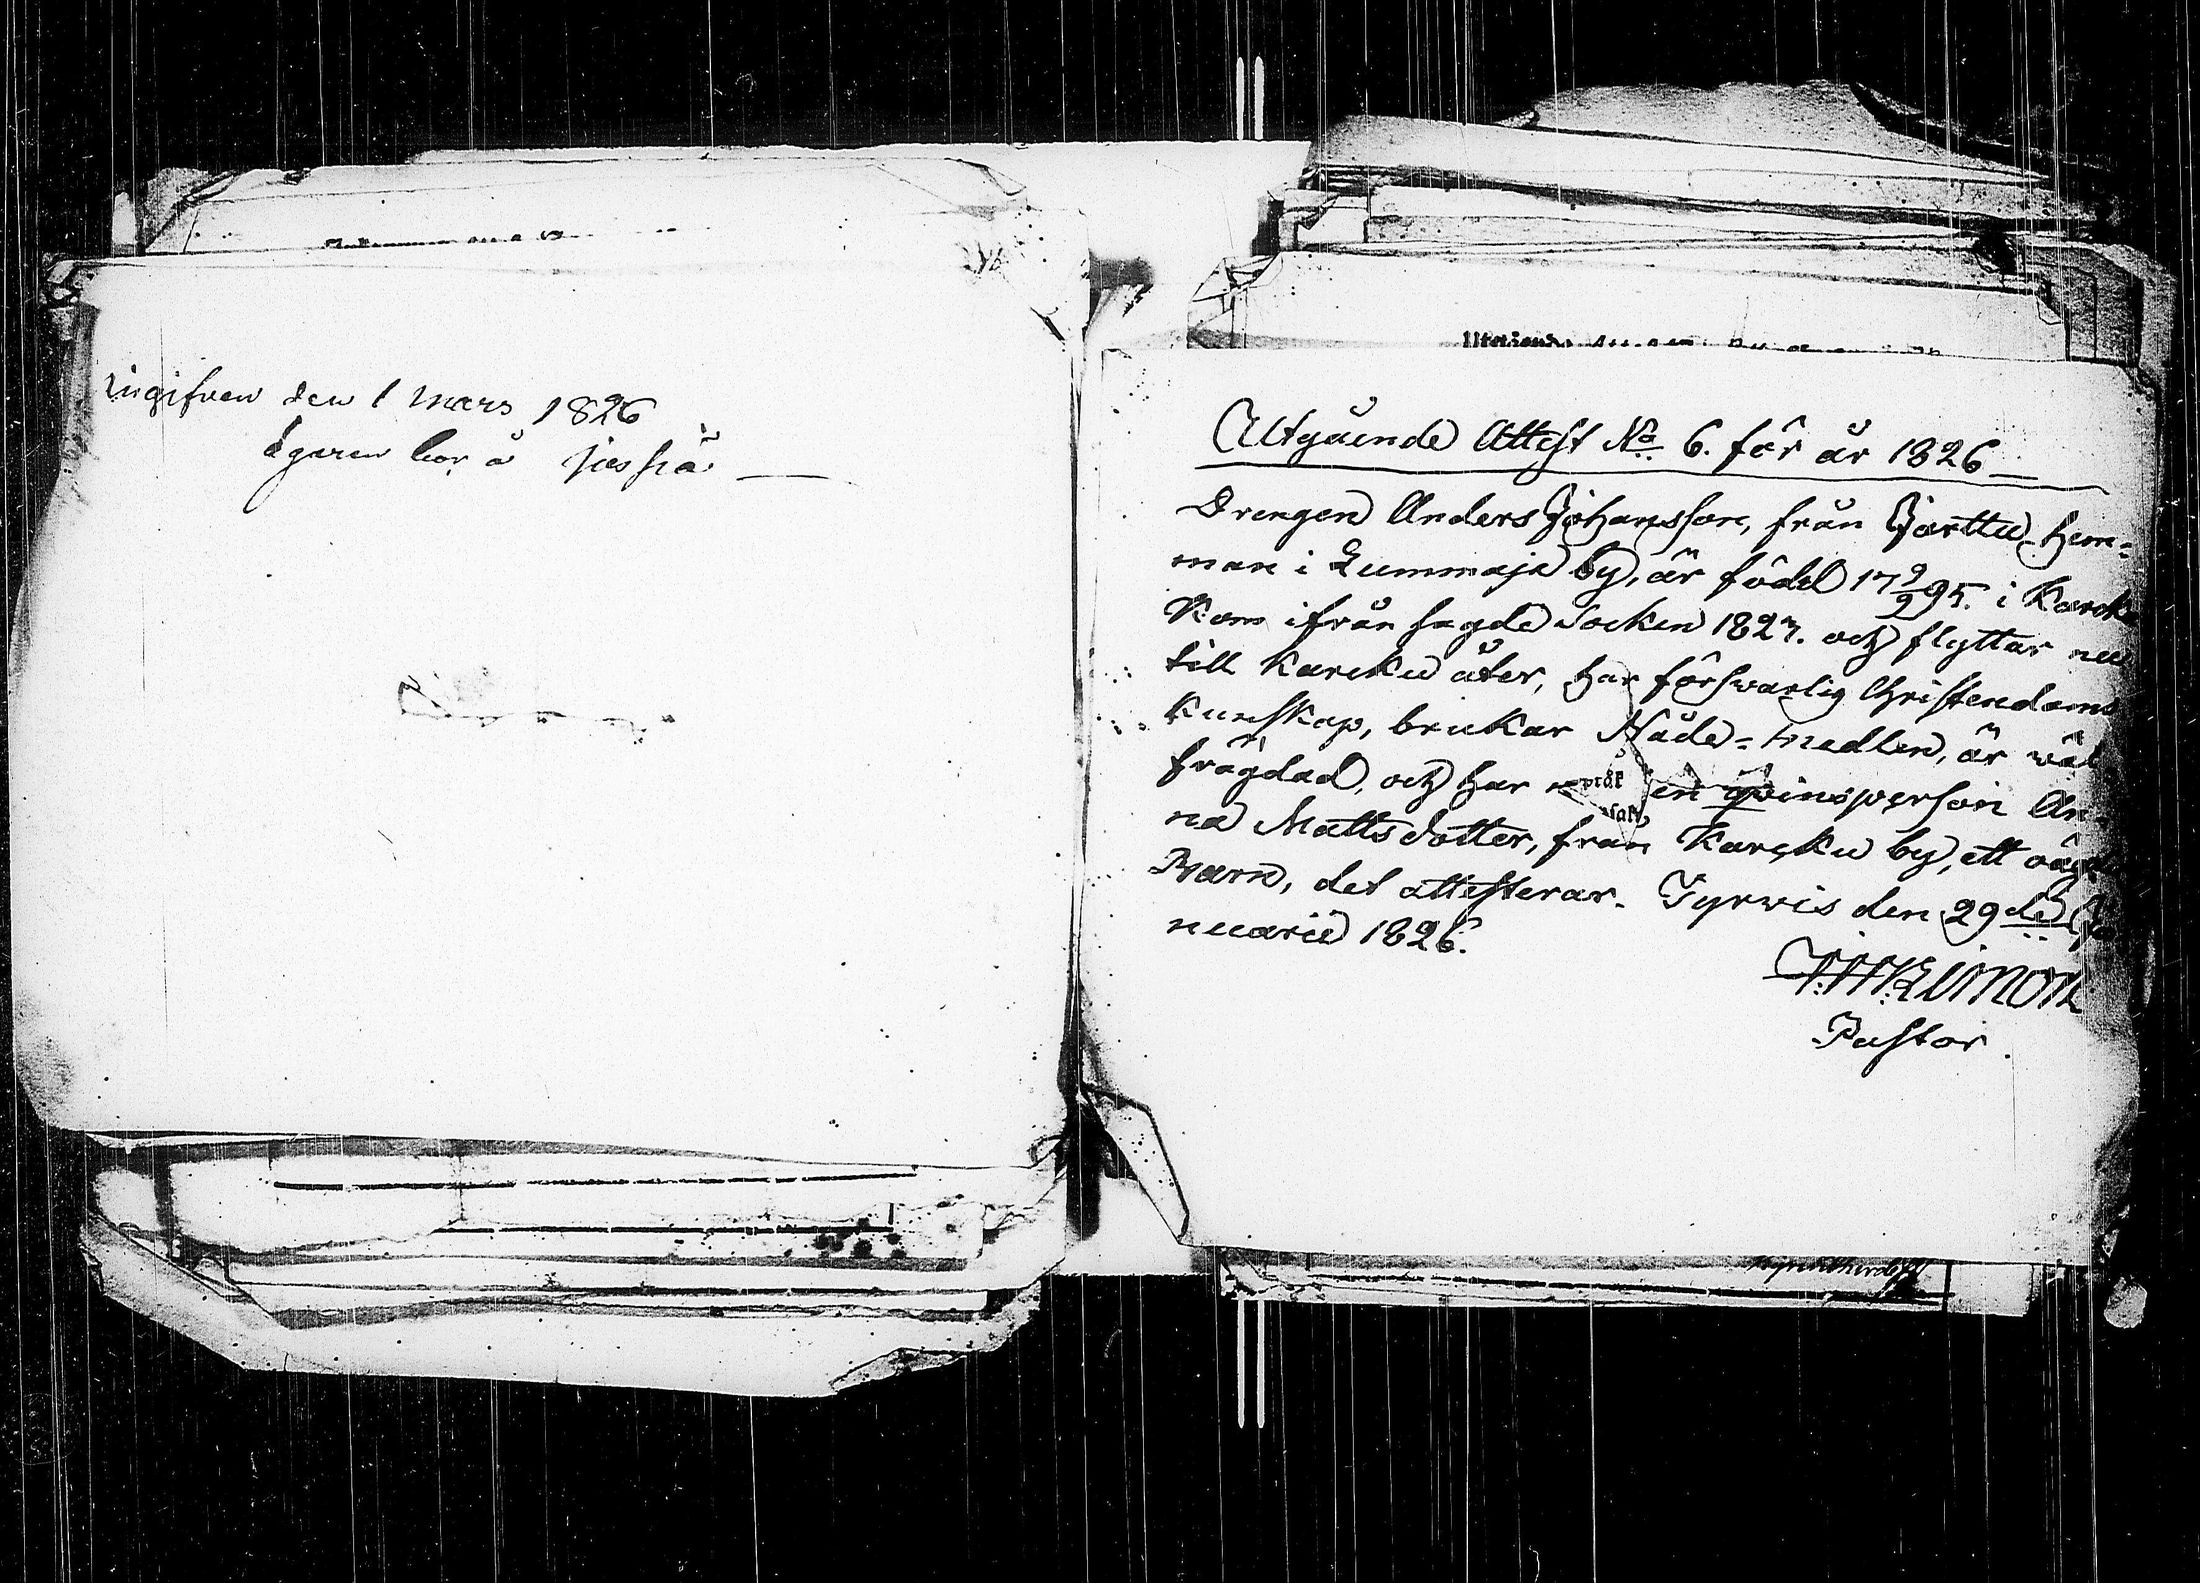 ingifven den 1 mars 1826
ägaren bor å
Utgående Attest No 6. för år 1826
Drengen Anders Johansson, från Jarttu hem=
man i Lummaja by, är född 17 9/2 95. i Karck
Kom ifrån sagde Socken 1823. och flyttar nu
till Karcku åter, har förswarlig Christendoms
kunskap, brukar Nåde=medlen, är wäl
frägdad, och har en qwinsperson An-
na Mattsdotter, från Karcku by, ett oägta
Barn, det attesterar. Tyrwis den 29de Ja
nuarii 1826.
Pastor.